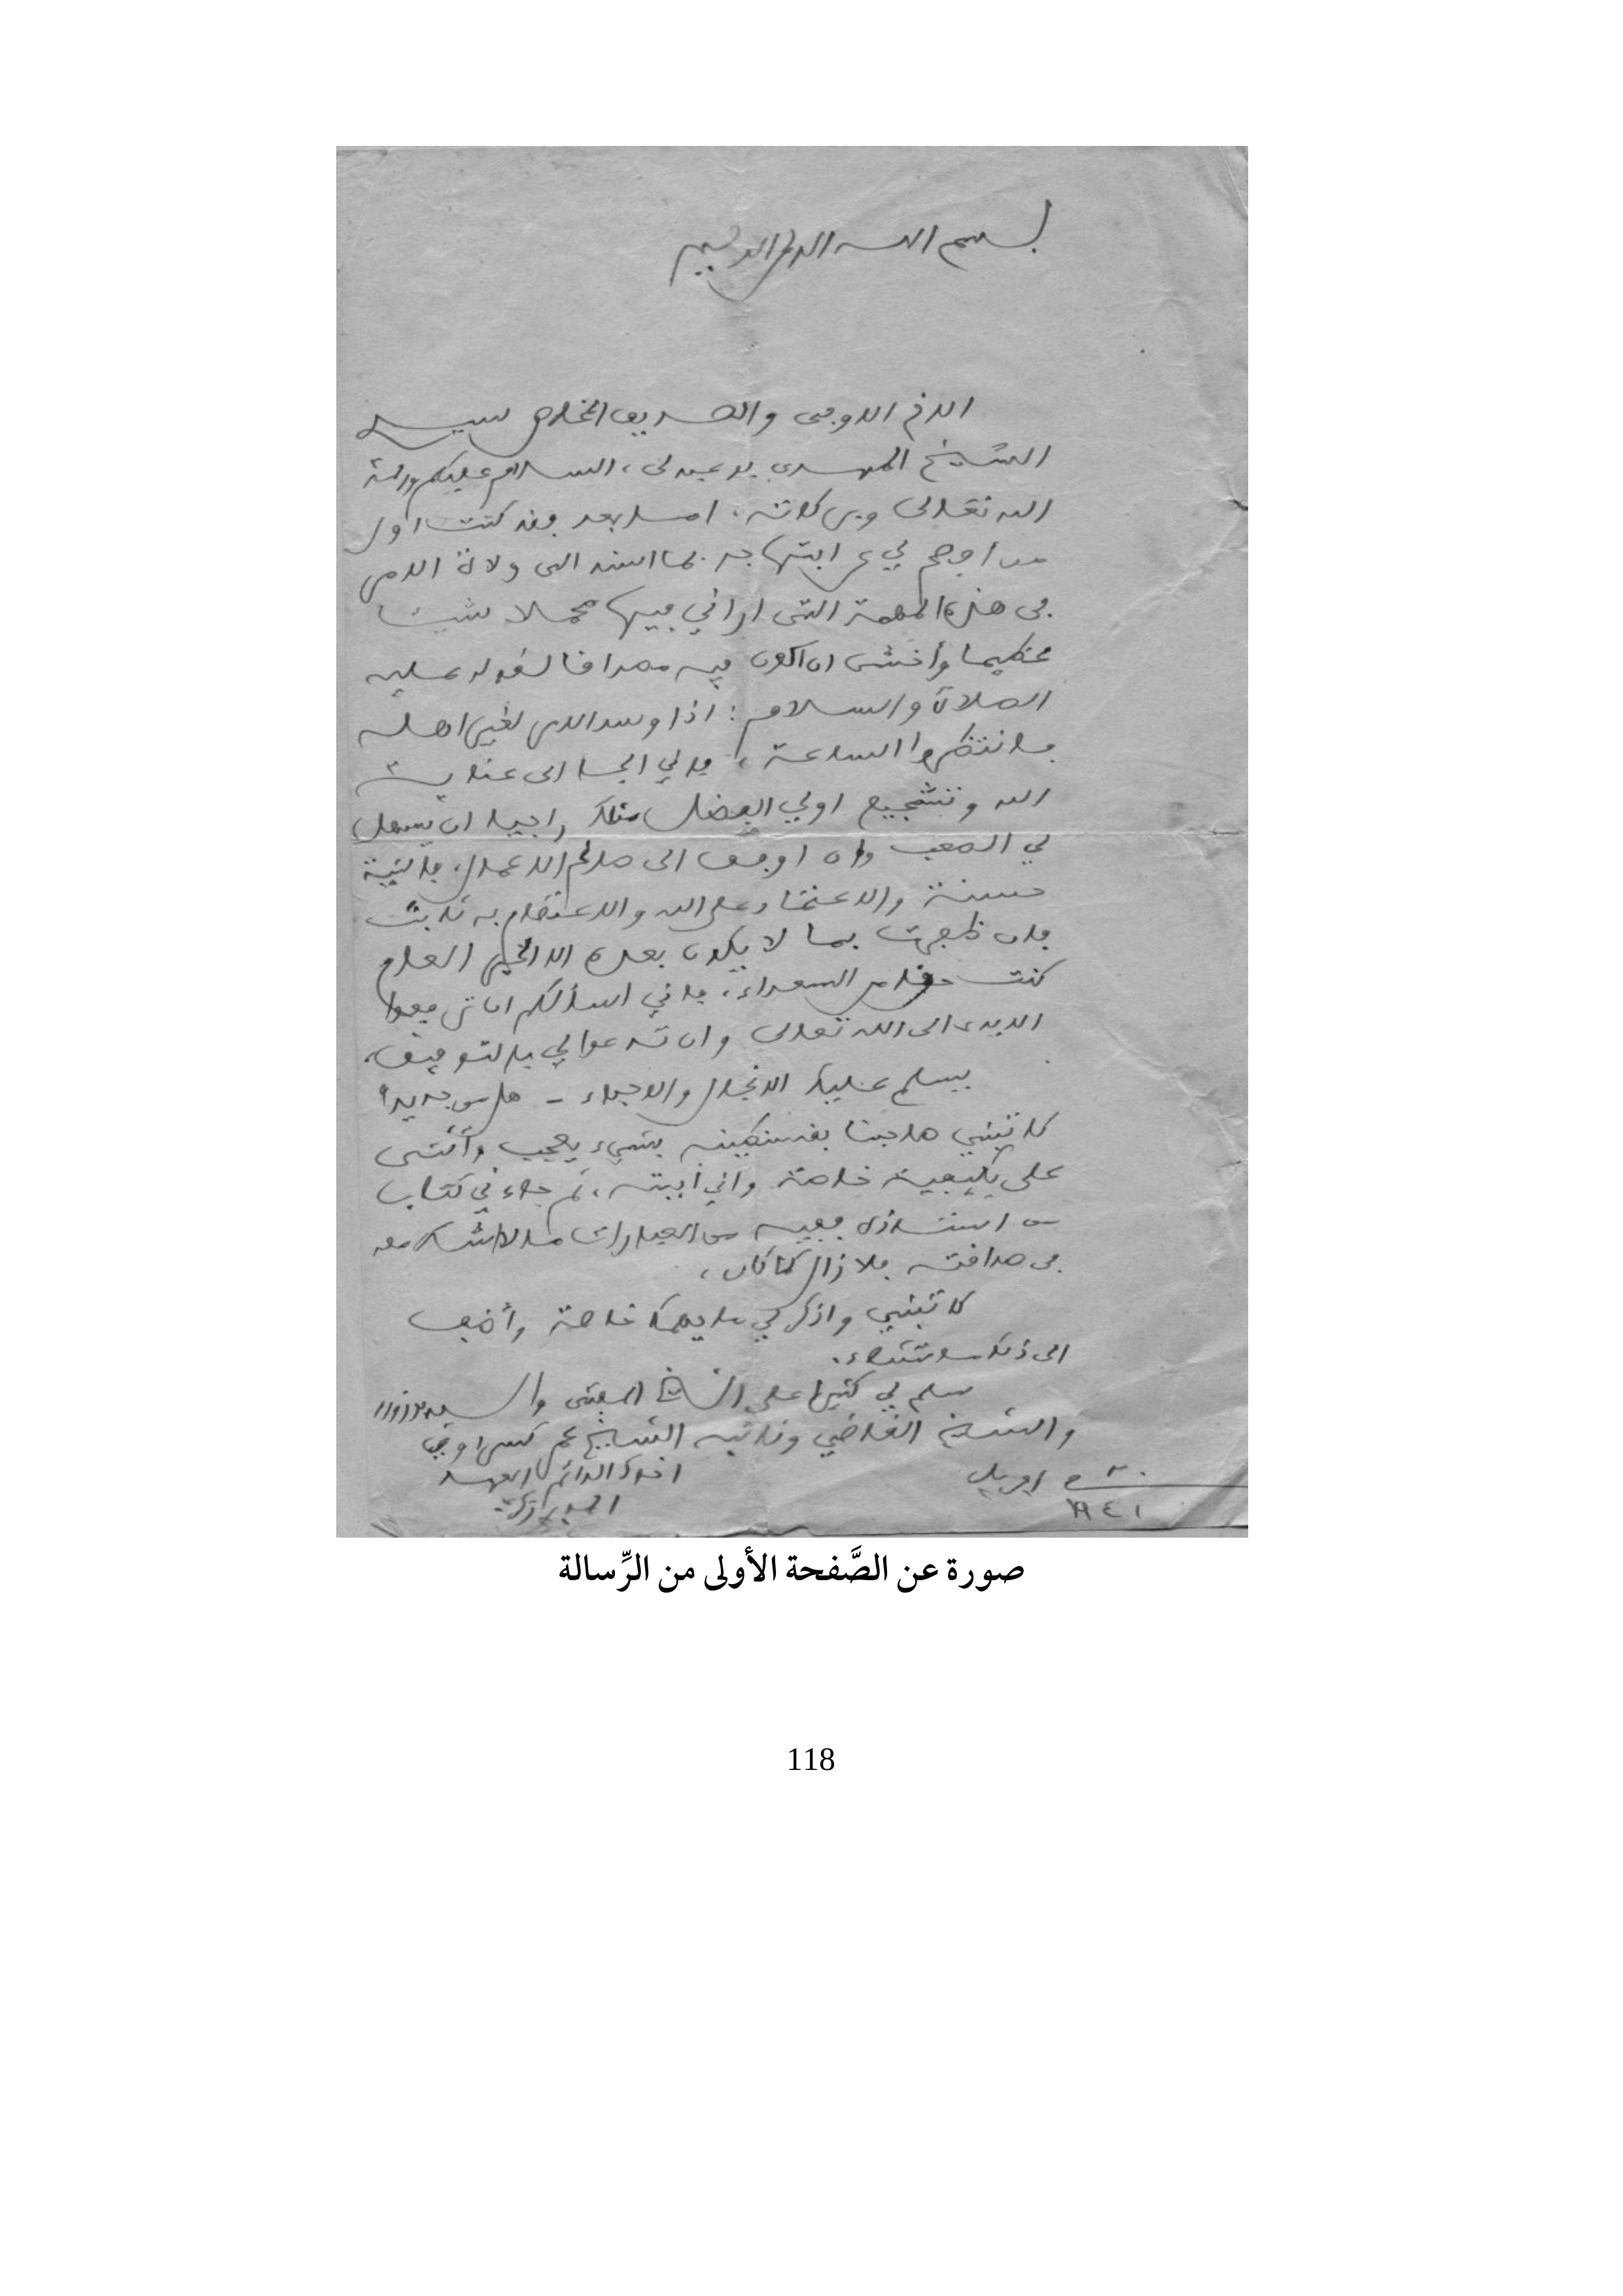 بسم الله الرحمن الرحيم
الاخ الاوفى والصديق المخلص سيدي
الشيخ المهدي بوعبدلى، السلام عليكم ورحمة
الله تعالى وبركاته، اما بعد فقد كنت اول
من أوضح لي عن ابتهاجه بما اسند الى ولاة الامر
في هذه المهمة التى اراني فيها محملا شيئا
عظيما وأخشى ان اكون فيه مصداقا لقوله عليه
الصلاة والسلام: اذا وسد الامر لغير اهله
فانتظروا الساعة، فاني الجأ الى عناية
الله وتشجيع اولي الفضل مثلك راجيا ان يسهل
لي الصعب وان اوفق الى صالح الاعمال، فالنية
حسنة والاعتماد على الله والاعتصام به ثابت
فان ظفرت بما لا يكون بعده الا الخير العام
كنت من السعداء، فاني اسألكم ان ترفعوا
الايدى الى الله تعالى وان تدعوا لي بالتوفيق.
يسلم عليك الانجال والاحباء - هل من جديد؟
كاتبني صاحبنا بشيء يعجب وأثنى
على بكيفية خاصة واني أجبته، ثم جاءني كتاب
من استاذى ففيه من العبارات ما لا اشك معه
في صداقته فلا زال كما كان،
كاتبني واذكر لي ما يهمك خاصة وأضف
الى ذلك ما تشاء.
سلم لي كثيرا على الشيخ المفتى والسيد بوزوزو
والشيخ القاضي ونائبه الشيخ
اخوك الدائم العهد
ابريل
١٩٤١
صورة عن الصَّفحة الأولى من الرِّسالة
118